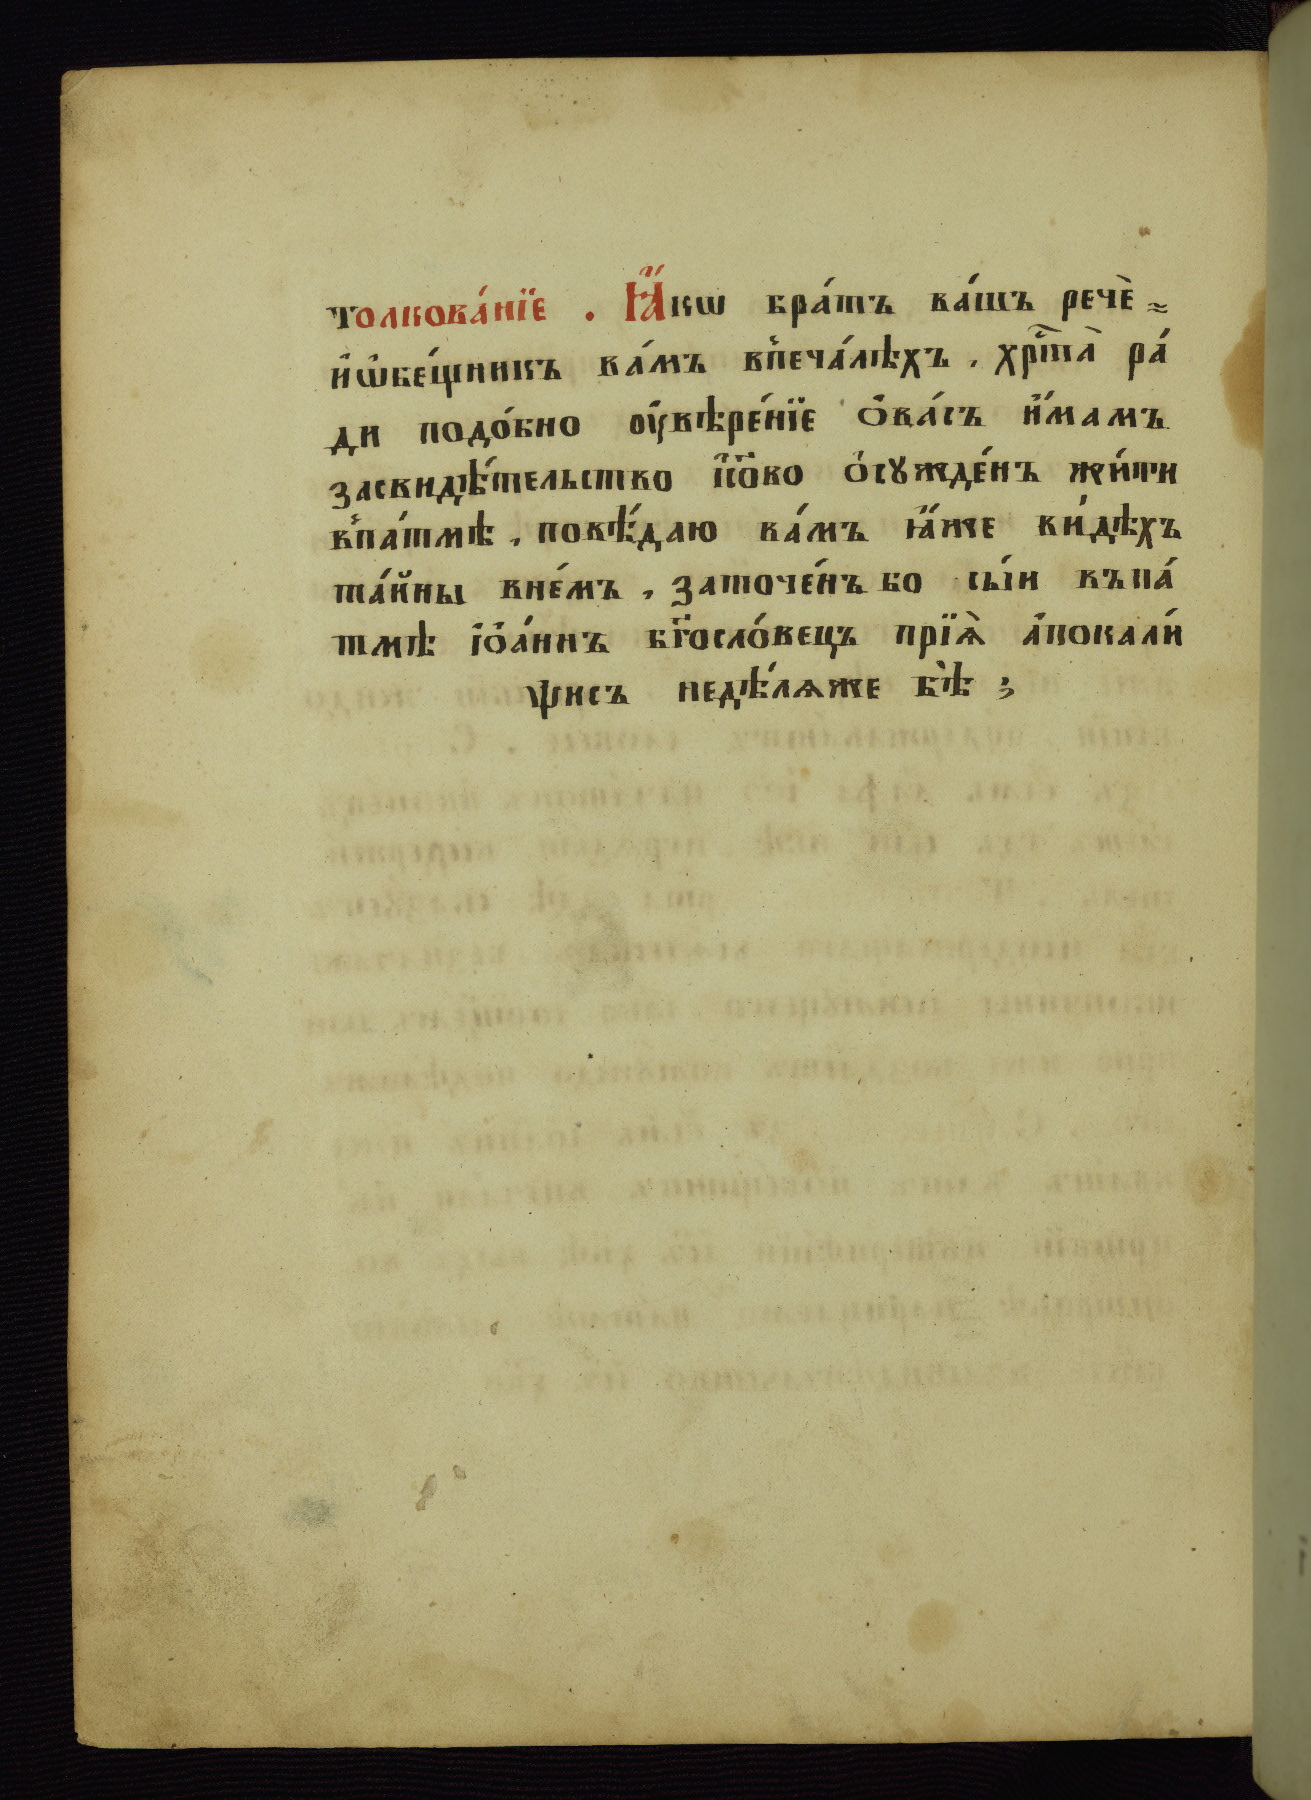 толкова́нїе . Ꙗ҆́кѡ бра́тъ ва́шъ речѐ ≈
и҆ѡ҆бе́щникъ ва́мъ в҆печа́лѣхъ . хрⷭ҇та̀ ра́
ди подо́бно ᲂу҆вѣре́нїе ѻ҆ва́съ и҆́мамъ
засвидѣ́тельство і҆сⷭ҇ово ѻ҆сꙋжде́нъ жи́ти
в҆па́тмѣ . повѣ́даю ва́мъ ꙗ҆́же ви́дѣхъ
та́йны вне́мъ . заточе́нъ бо сы́и въпа́
тмѣ і҆ѻ҆а́ннъ бг҃осло́вецъ прїѧ̀ а҆покали́
ѱисъ недѣ́лѧже бѣ̀ ;